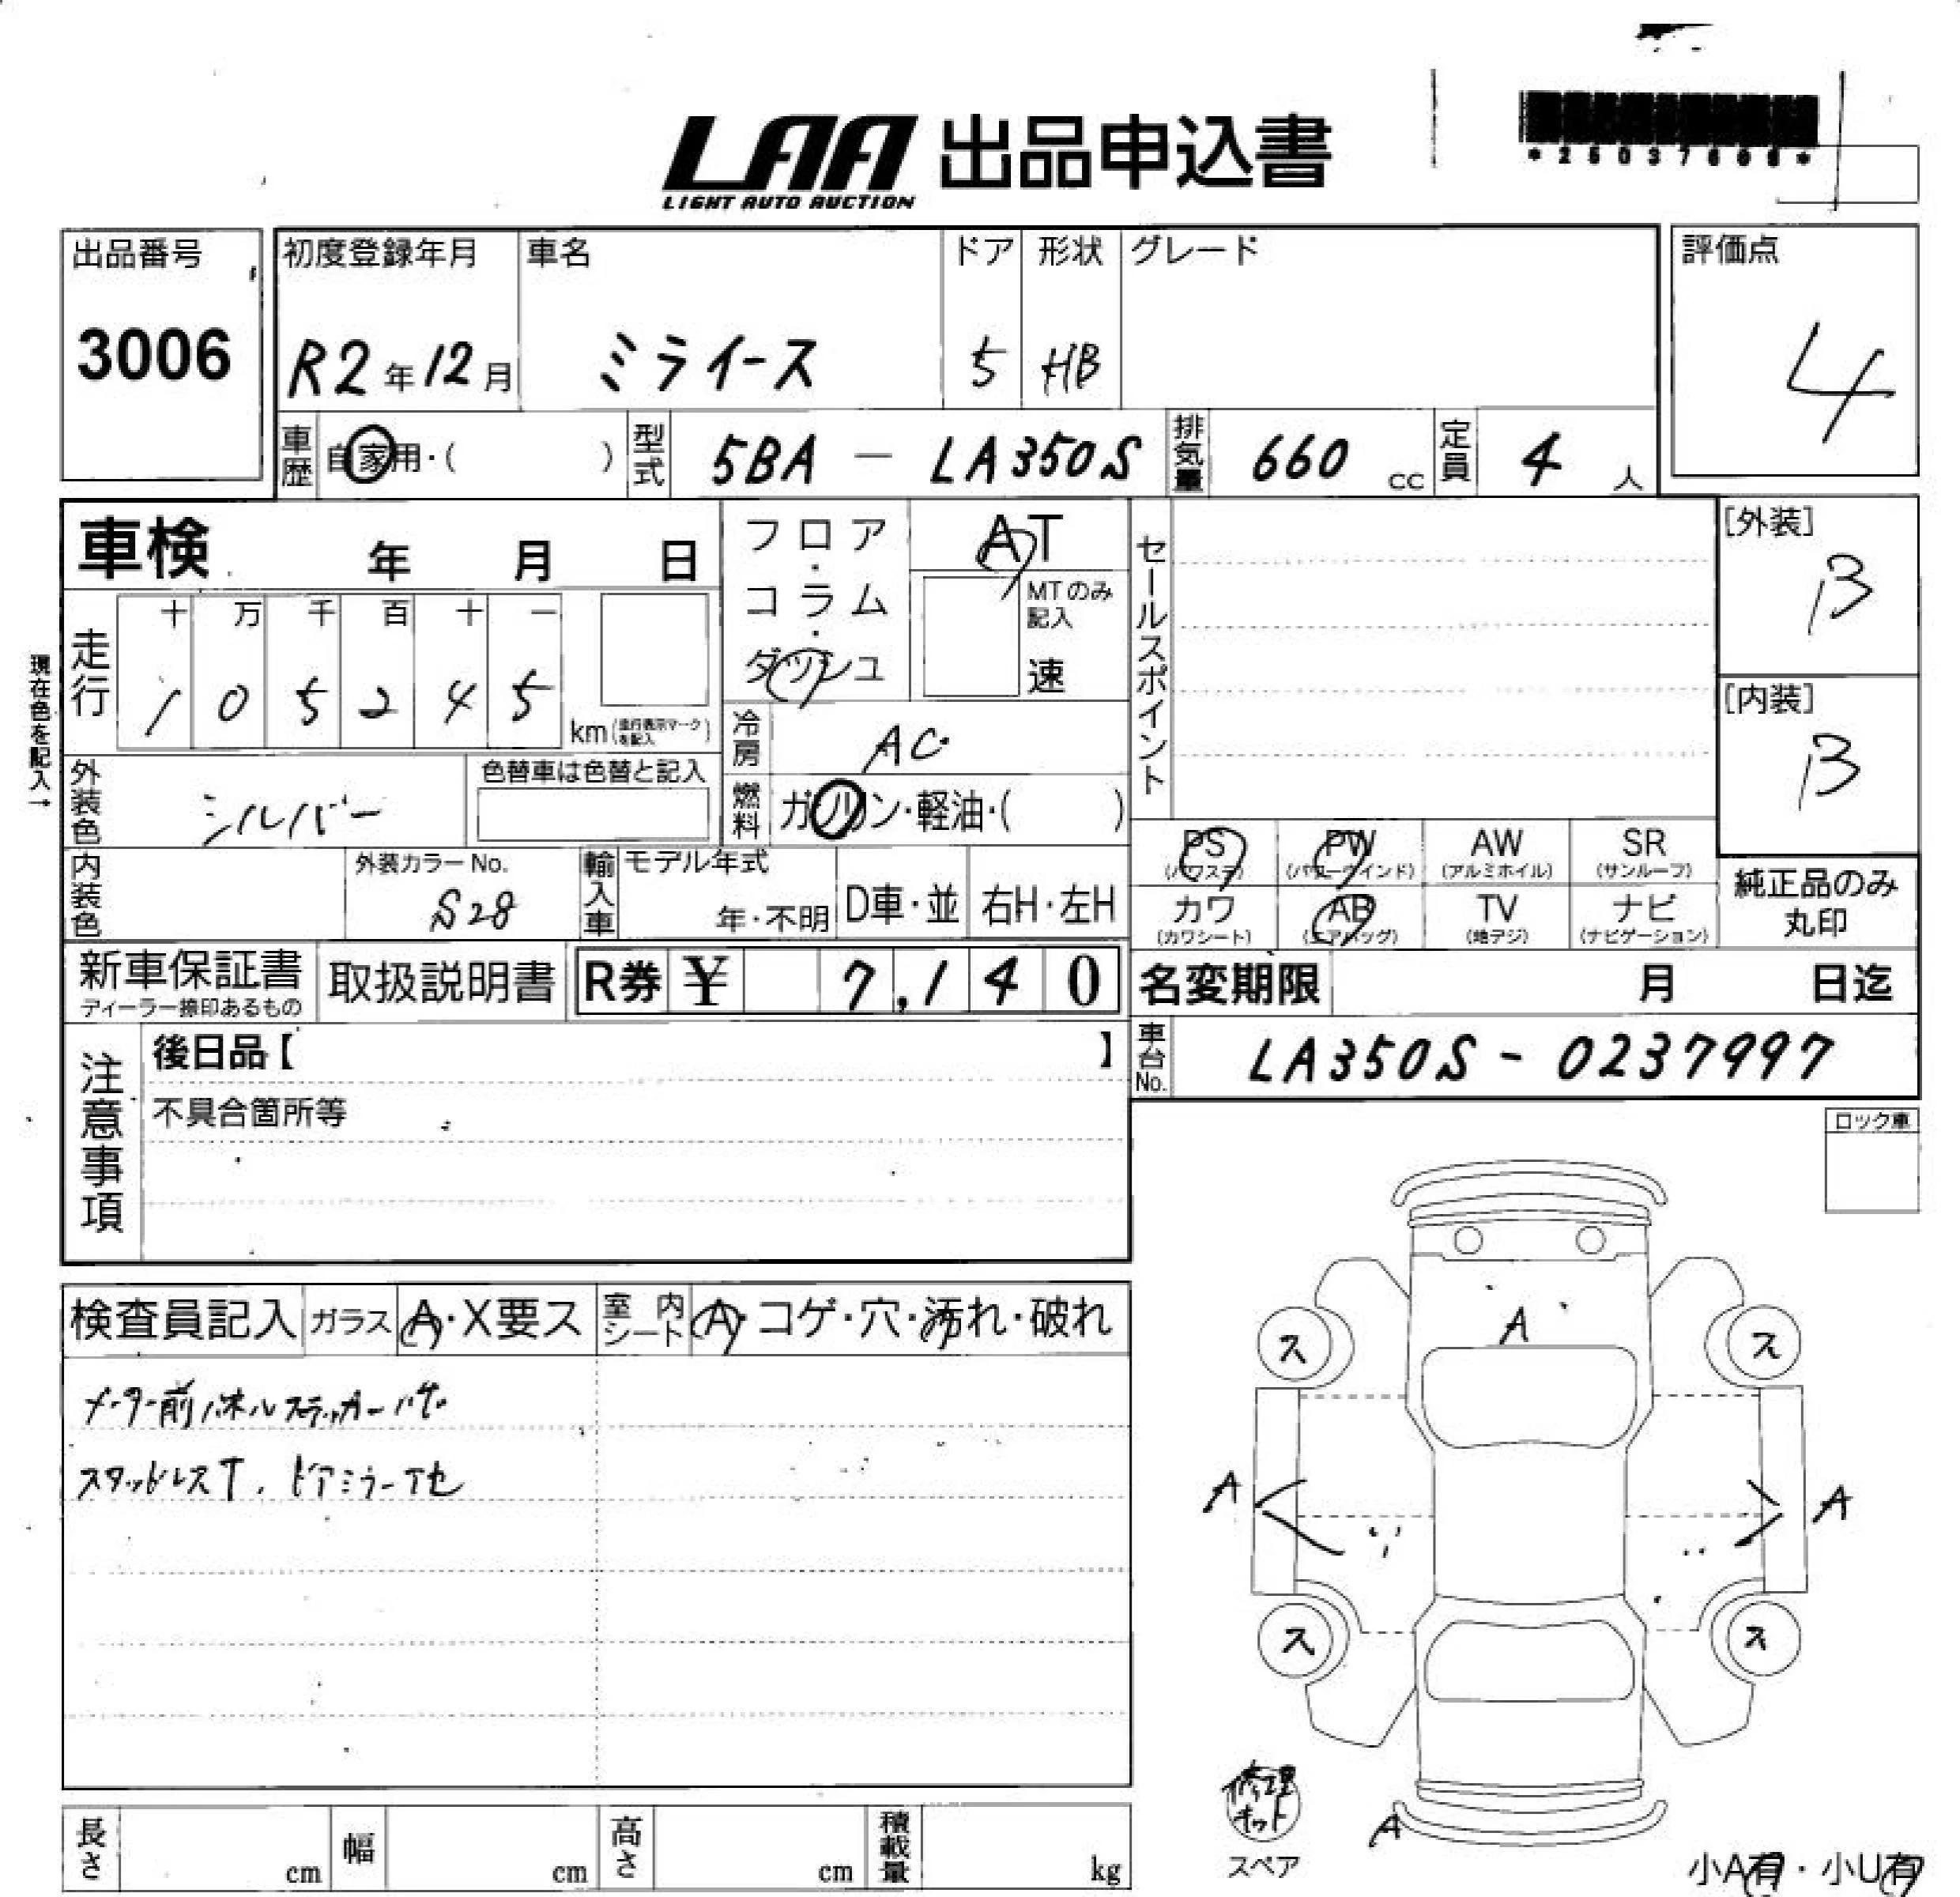 *25037608*
LAA 出品申込書
LIGHT AUTO AUCTION
出品番号
3006
初度登録年月
R2年12月
車名
ミライース
ドア
5
形状
HB
グレード
評価点
4
車歴 自家用・( )
型式 5BA - LA350S
排気量 660 cc
定員 4 人
車検 年 月 日
フロア・コラム・ダッシュ
AT
MTのみ記入
速
セールスポイント
[外装]
B
[内装]
B
現在色を記入→
走行
十 万 千 百 十 一
1 0 5 2 4 5
km (走行表示マークを記入)
冷房 AC
外装色 シルバー
色替車は色替と記入
燃料 ガソリン・軽油・( )
内装色
外装カラーNo.
S28
輸入車
モデル年式
年・不明
D車・並
右H・左H
PS (パワステ)
PW (パワーウインド)
AW (アルミホイル)
SR (サンルーフ)
カワ (カワシート)
AB (エアバッグ)
TV (地デジ)
ナビ (ナビゲーション)
純正品のみ
丸印
新車保証書
ディーラー捺印あるもの
取扱説明書
R券 ¥ 7,140
名変期限 月 日迄
車台No. LA350S - 0237997
注意事項
後日品【 】
不具合箇所等
ロック車
検査員記入
ガラス A・X要ス
室内シート A・コゲ・穴・汚れ・破れ
メーター前パネルステッカーハゲ
スタッドレスT、ドアミラー他
A
ス
ス
A
A
ス
ス
A
修理
キット
スペア
小A有・小U有
長さ cm
幅 cm
高さ cm
積載量 kg